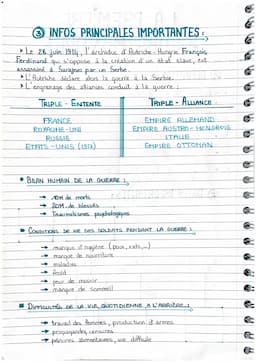 ③ INFOS PRINCIPALES IMPORTANTES :
• Le 28 juin 1914, l'archiduc d'Autriche-Hongrie François
Ferdinand qui s'oppose à la création d'un état slave, est
assassiné à Sarajevo par un Serbe.
• L'Autriche déclare alors la guerre à la Serbie.
• L'engrenage des alliances conduit à la guerre :
TRIPLE - ENTENTE
TRIPLE - ALLIANCE
FRANCE
EMPIRE ALLEMAND
ROYAUME-UNI
EMPIRE AUSTRO-HONGROIS
RUSSIE
ITALIE
ETATS-UNIS (1917)
EMPIRE OTTOMAN
• BILAN HUMAIN DE LA GUERRE :
→ 10M de morts
→ 20M de blessés
→ Traumatismes psychologiques
• CONDITIONS DE VIE DES SOLDATS PENDANT LA GUERRE :
→ manque d'hygiène (poux, rats,...)
→ manque de nourriture
→ maladies
→ froid
→ peur de mourir
→ manque de sommeil
• DIFFICULTÉS DE LA VIE QUOTIDIENNE A L'ARRIÈRE :
→ travail des femmes, production d'armes
→ propagandes, censures
→ pénuries alimentaires, vie difficile